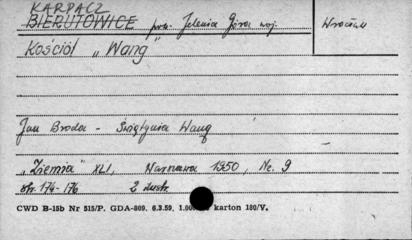 KARPACZ
BIERUTOWICE pow. Jelenia Góra woj. Wrocław
Kościół „Wang"
Jan Broda - Świątynia Wang
„Ziemia" XLI, Warszawa 1950, Nr. 9
str. 174-176 2 ilustr.
CWD B-15b Nr 515/P. GDA-809. 6.3.59. 1.000 karton 180/V.